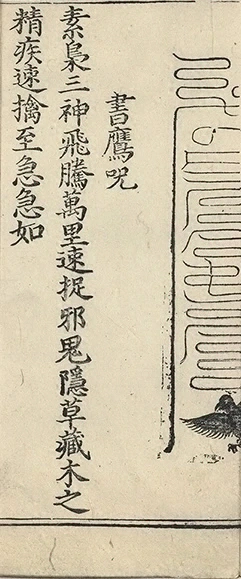 書鷹咒
素梟三神飛騰萬里速捉邪鬼隱草藏木之
精疾速擒至急急如